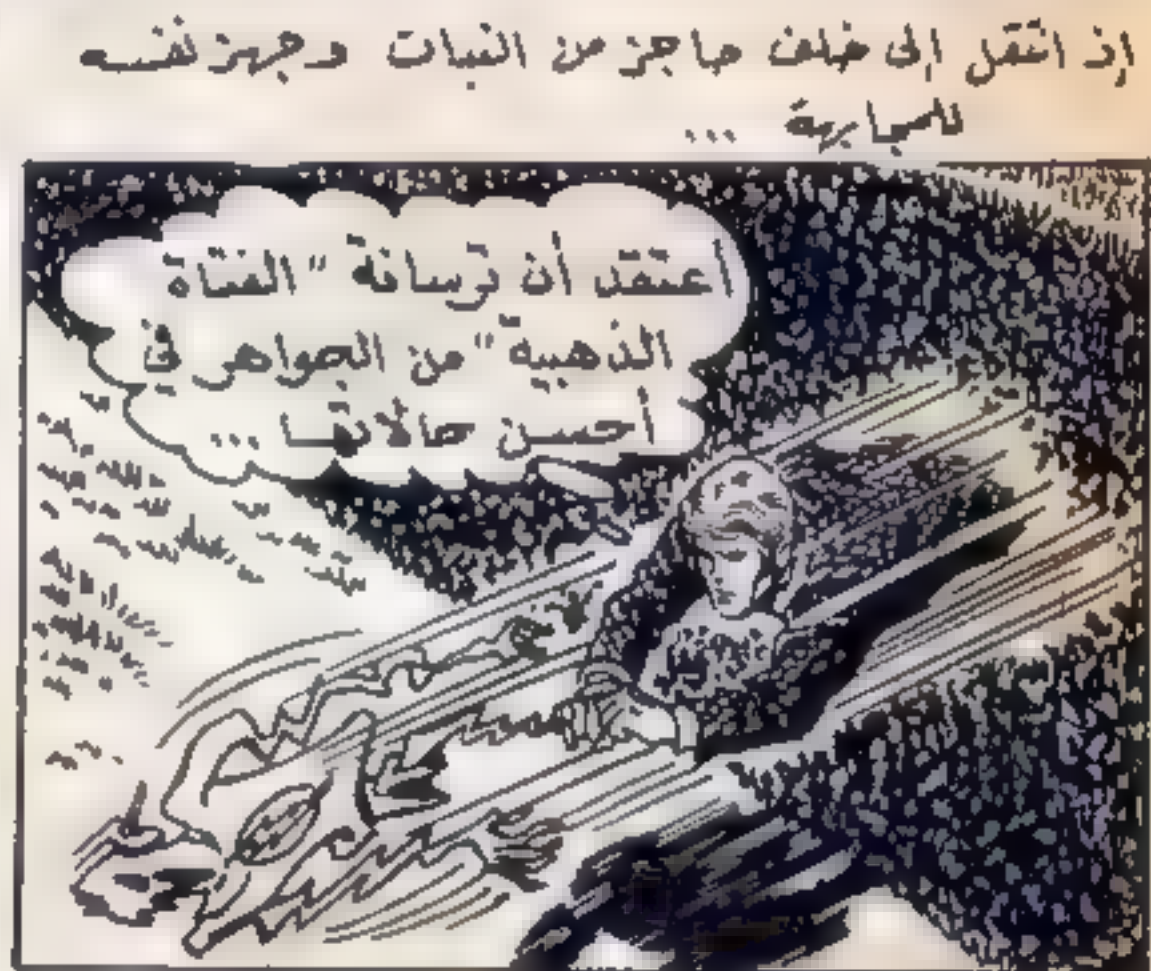 إذ انتقل إلى خلف حاجز من النبات وجهز نفسه
للمجابهة ...
أعتقد أن ترسانة "الفتاة
الذهبية" من الجواهر في
أحسن حالاتها ...